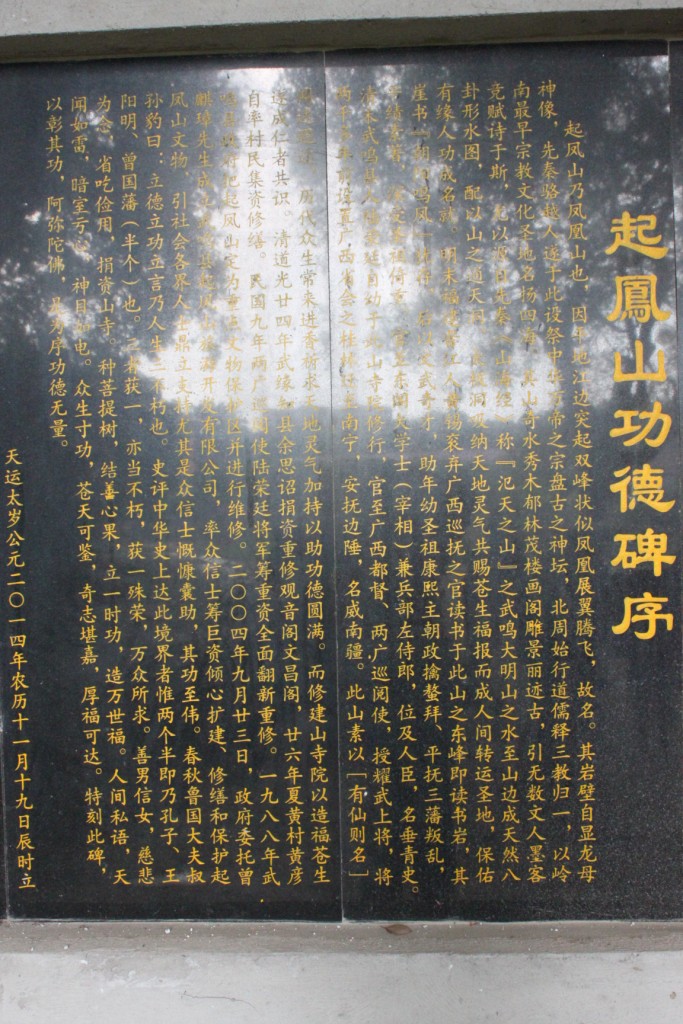 起鳳山功德碑序
起凤山乃凤凰山也，因平地江边突起双峰状似凤凰展翼腾飞，故名。其岩壁自显龙母
神像，先秦骆越人遂于此设祭中华 帝之宗盘古之神坛，北周始行道儒释三教归一，以岭
南最早宗教文化圣地名扬四海，其山奇水秀木郁林茂楼画阁雕景丽迹古，引无数文人墨客
竞赋诗于斯， 以 先秦《山海经》称『汜天之山』之武鸣大明山之水至山边成天然八
卦形水图，配以山之通天 洞吸纳天地灵气共赐苍生福报而成人间转运圣地，保佑
有缘人功成名就。明末 人 锡衮弃广西巡抚之官读书于此山之东峰即读书岩，其
崖书『朝阳鸣凤』 文武奇才，助年幼圣祖康熙主朝政擒鳌拜、平抚三藩叛乱，
绩 倚重，官至东阁大学士（宰相）兼兵部左侍郎，位及人臣，名垂青史。
清末武鸣县 陆荣廷自幼于此山寺院修行，官至广西都督、两广巡阅使，授耀武上将，将
广西省会之桂林迁至南宁，安抚边陲，名威南疆。此山素以「有仙则名」
历代众生常来进香祈求天地灵气加持以助功德圆满。而修建山寺院以造福苍生
遂成仁者共识。清道光廿四年武缘知县余思诏捐资重修观音阁文昌阁，廿六年夏黄村黄彦
自率村民集资修缮。民国九年两广巡阅使陆荣廷将军筹重资全面翻新重修。一九八八年武
鸣县政府把起凤山定为重点文物保护区并进行维修。二〇〇四年九月廿三日，政府委托曾
麒璋先生成立 开发有限公司，率众信士筹巨资倾心扩建、修缮和保护起
凤山文物，引社会各界人士鼎立支持尤其是众信士慨慷囊助，其功至伟。春秋鲁国大夫叔
孙豹曰：立德立功立言乃人生三不朽也。史评中华史上达此境界者惟两个半即乃孔子、王
阳明、曾国藩（半个）也。三者获一，亦当不朽，获一殊荣，万众所求。善男信女，慈悲
为念，省吃俭用，捐资山寺。种菩提树，结善心果，立一时功，造万世福。人间私语，天
闻如雷，暗室亏心，神目如电。众生寸功，苍天可鉴，奇志堪嘉，厚福可达。特刻此碑，
以彰其功，阿弥陀佛，是为序功德无量。
天运太岁公元二〇一四年农历十一月十九日辰时立